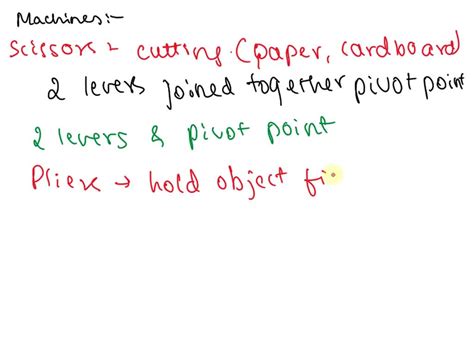 Machines:-
Scissors - cutting. (paper, cardboard)
2 levers joined together pivot point
2 levers & pivot point
Plier → hold object fi